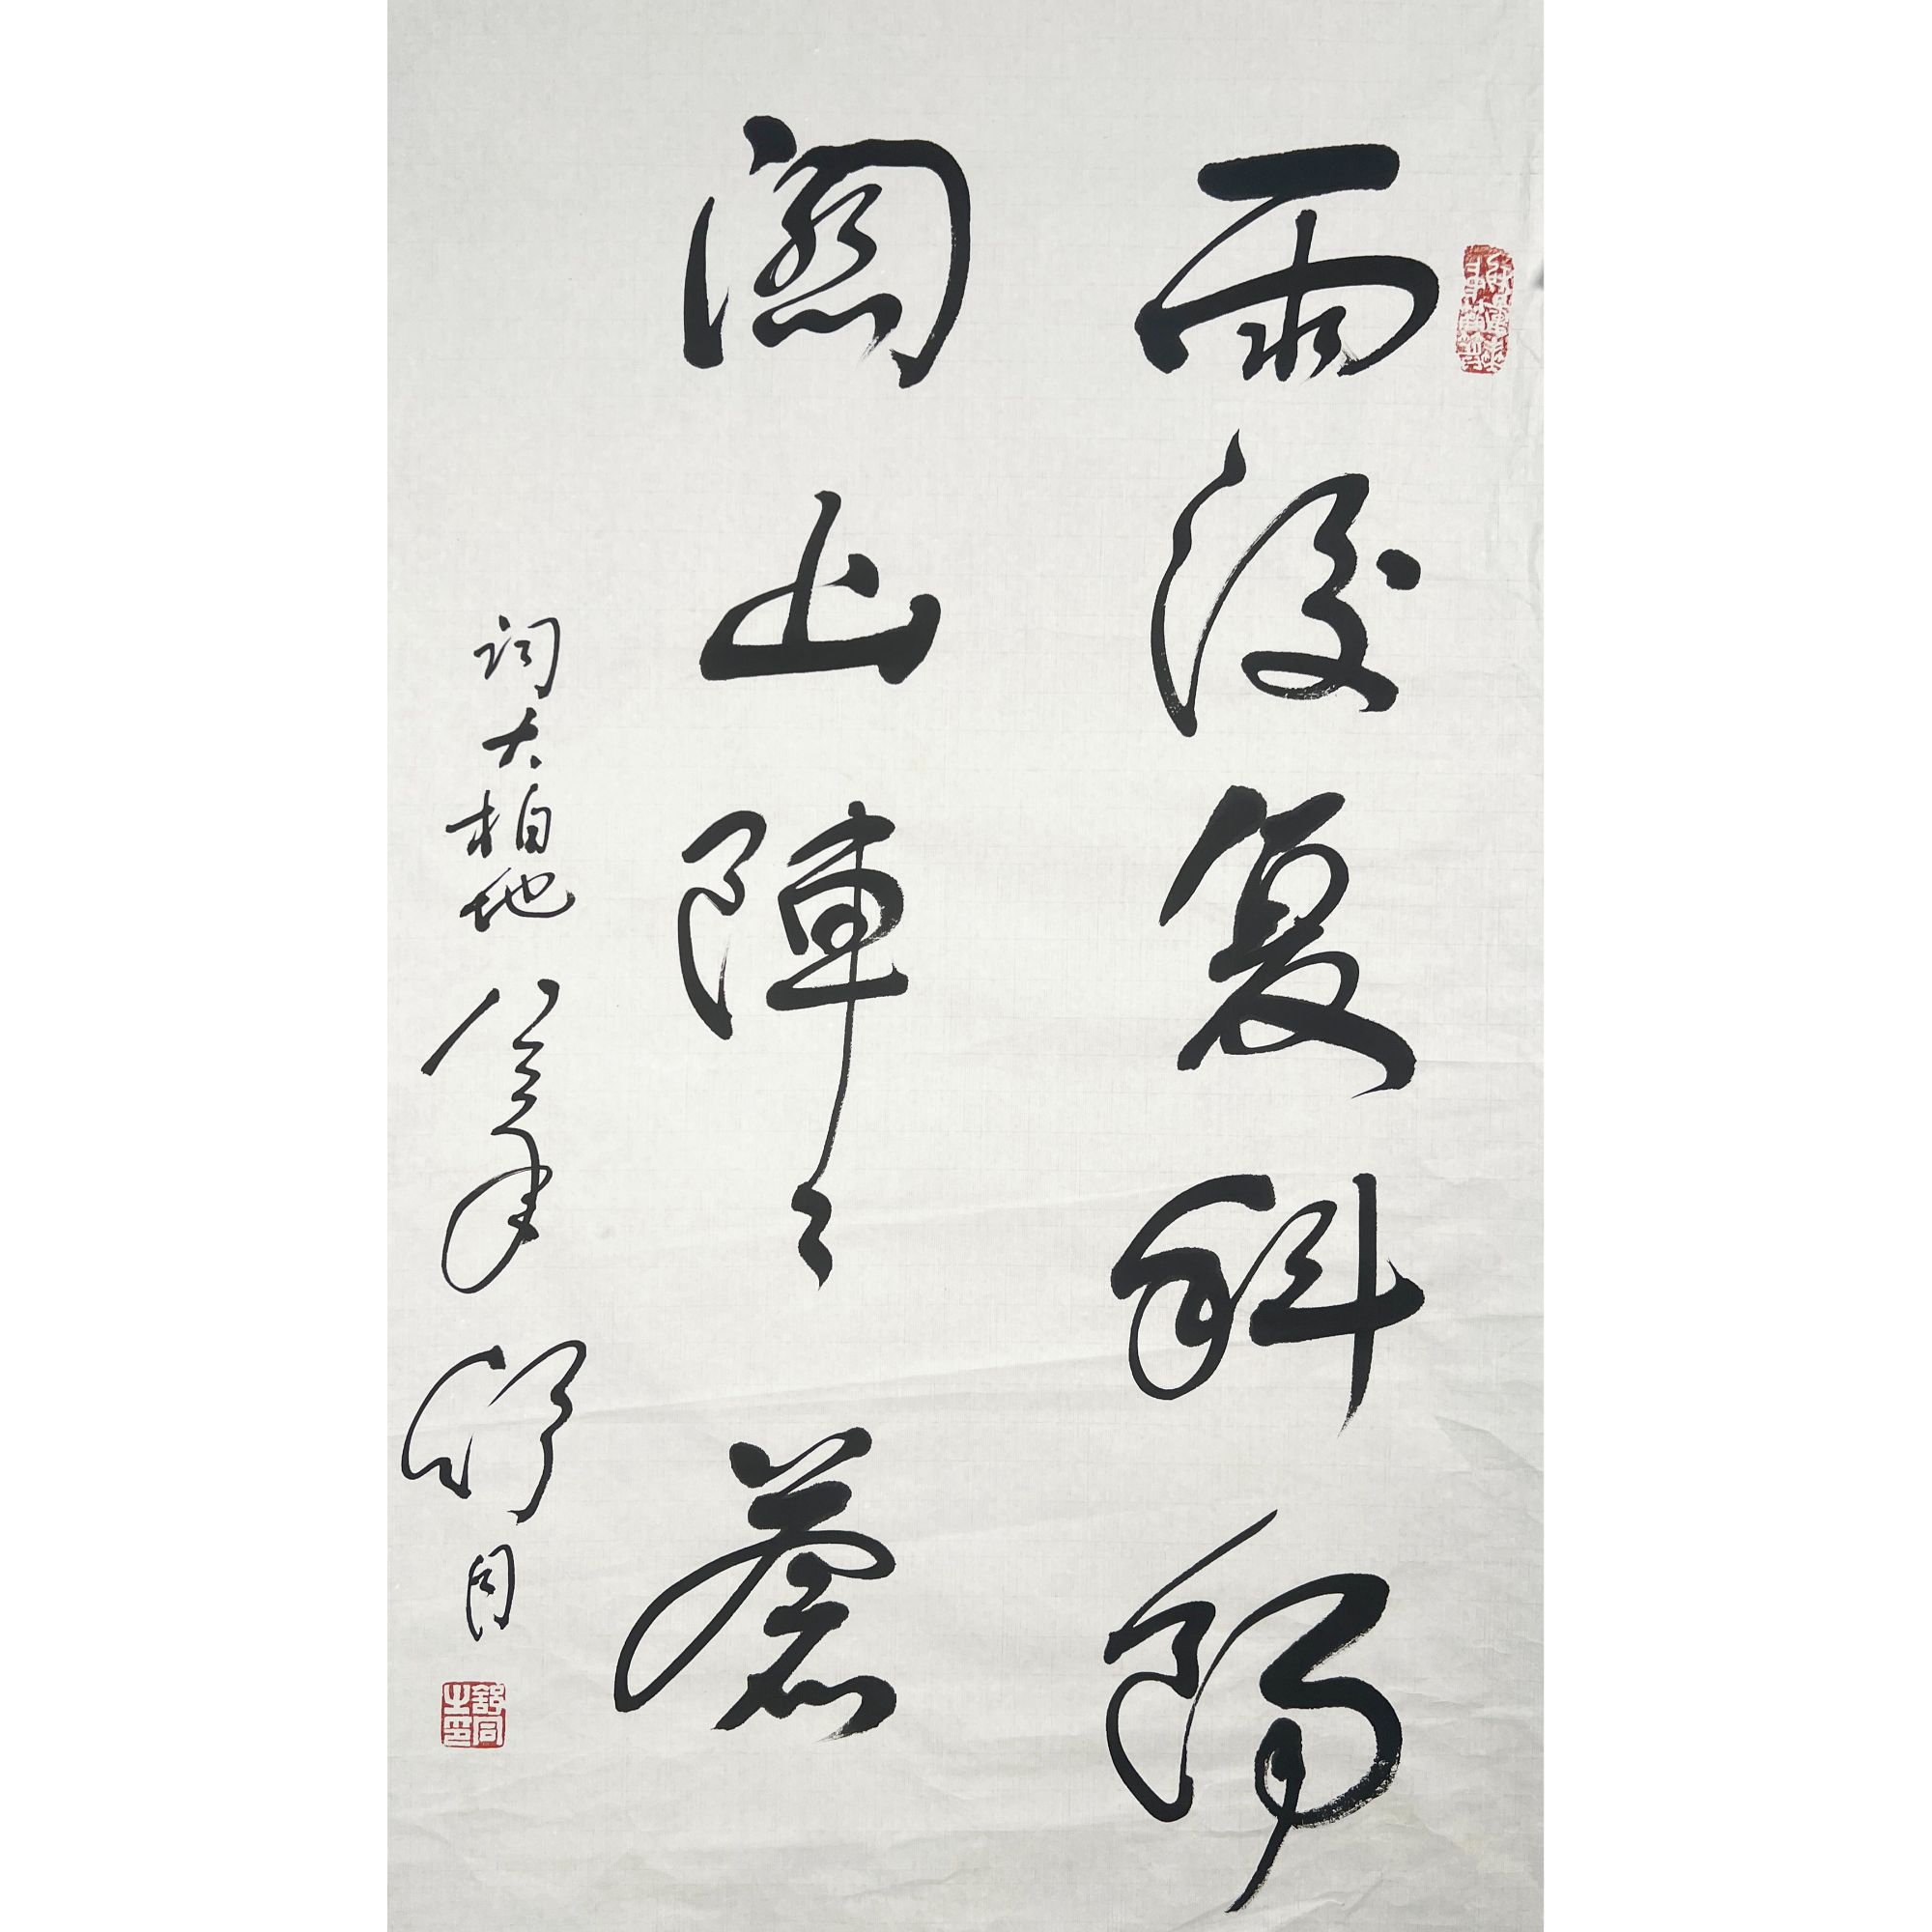 雨後复斜陽
關山陣々蒼
詞大柏地 舒同
舒同之印